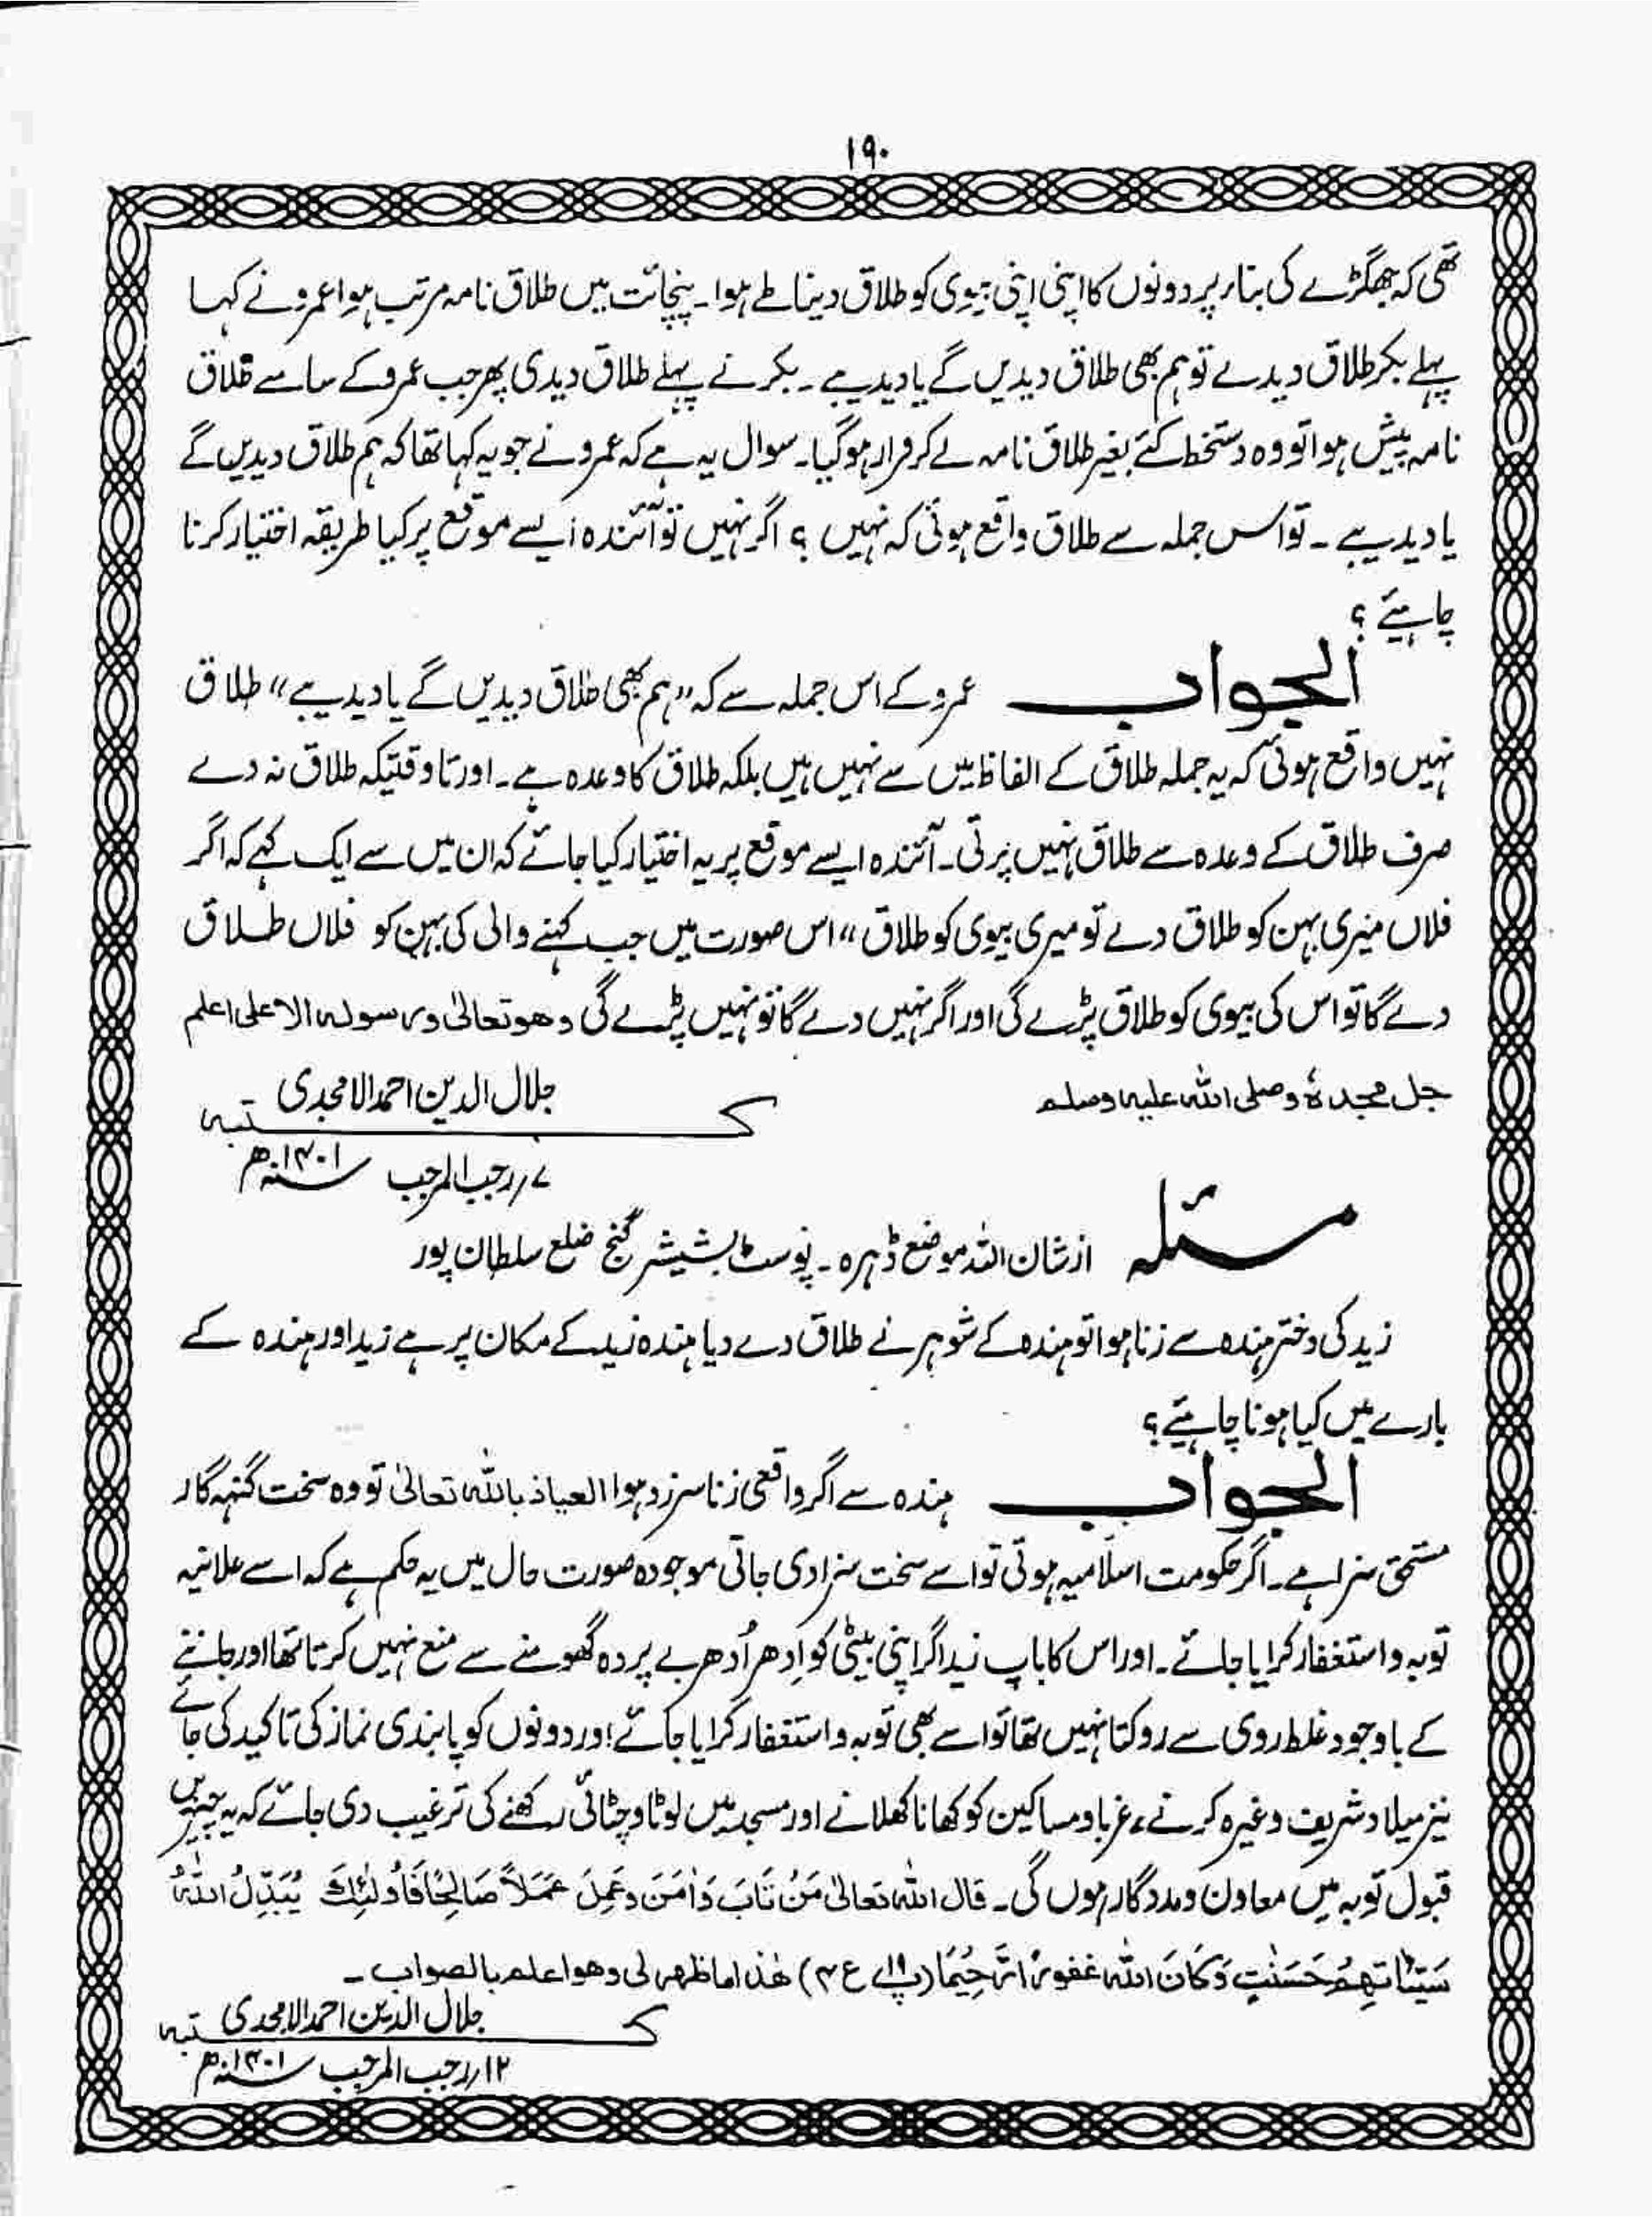 ۱۹۰
تھی کہ جھگڑے کی بناء پر دونوں کا اپنی اپنی بیوی کو طلاق دینا طے ہوا۔ پنچائت میں طلاق نامہ مرتب ہوا عمرو نے کہا
پہلے بکر طلاق دیدے تو ہم بھی طلاق دیدیں گے یا دیدیبے۔ بکر نے پہلے طلاق دیدی پھر جب عمرو کے سامنے طلاق
نامہ پیش ہوا تو وہ دستخط کئے بغیر طلاق نامہ لے کر فرار ہوگیا۔ سوال یہ ہے کہ عمرو نے جو یہ کہا تھا کہ ہم طلاق دیدیں گے
یا دیدیبے۔ تو اس جملہ سے طلاق واقع ہوئی کہ نہیں ؟ اگر نہیں تو آئندہ ایسے موقع پر کیا طریقہ اختیار کرنا
چاہیئے ؟
الجواب عمرو کے اس جملہ سے کہ ،،ہم بھی طلاق دیدیں گے یا دیدیبے،، طلاق
نہیں واقع ہوئی کہ یہ جملہ طلاق کے الفاظ میں سے نہیں ہیں بلکہ طلاق کا وعدہ ہے۔ اور تاوقتیکہ طلاق نہ دے
صرف طلاق کے وعدہ سے طلاق نہیں پڑتی۔ آئندہ ایسے موقع پر یہ اختیار کیا جائے کہ ان میں سے ایک کہے کہ اگر
فلاں میری بہن کو طلاق دے تو میری بیوی کو طلاق ،، اس صورت میں جب کہنے والی کی بہن کو فلاں طلاق
دے گا تو اس کی بیوی کو طلاق پڑے گی اور اگر نہیں دے گا تو نہیں پڑے گی وھو تعالیٰ ورسولہ الاعلی اعلم
جل مجدہٗ وصلی اللہ علیہ وسلم
جلال الدین احمد الامجدی
کتبہ
۷؍رجب المرجب سنہ ۱۴۰۱ھ
مسئلہ از شان اللہ موضع ڈہرہ۔ پوسٹ بشیشر گنج ضلع سلطان پور
زید کی دختر ہندہ سے زنا ہوا تو ہندہ کے شوہر نے طلاق دے دیا ہندہ زید کے مکان پر ہے زید اور ہندہ کے
بارے میں کیا ہونا چاہیئے؟
الجواب ہندہ سے اگر واقعی زنا سرزد ہوا العیاذ باللہ تعالیٰ تو وہ سخت گنہگار
مستحق سزا ہے۔ اگر حکومت اسلامیہ ہوتی تو اسے سخت سزا دی جاتی موجودہ صورت حال میں یہ حکم ہے کہ اسے علانیہ
توبہ و استغفار کرایا جائے۔ اور اس کا باپ زید اگر اپنی بیٹی کو اِدھر اُدھر بے پردہ گھومنے سے منع نہیں کرتا تھا اور جاننے
کے باوجود غلط روی سے روکتا نہیں تھا تو اسے بھی توبہ و استغفار کرایا جائے اور دونوں کو پابندی نماز کی تاکید کی جائے
نیز میلاد شریف وغیرہ کرنے، غربا و مساکین کو کھانا کھلانے اور مسجد میں لوٹا و چٹائی رکھنے کی ترغیب دی جائے کہ یہ چیزیں
قبول توبہ میں معاون و مددگار ہوں گی۔ قال اللہ تعالیٰ مَنْ تَابَ وَاٰمَنَ وَعَمِلَ عَمَلاً صَالِحًا فَاُولٰئِكَ یُبَدِّلُ اللّٰہُ
سَیِّئَاتِھِمْ حَسَنٰتٍ وَکَانَ اللّٰہُ غَفُورًا رَّحِیْمًا (پ۱۹ ع۴) ھٰذا ما ظھر لی وھو اعلم بالصواب۔
جلال الدین احمد الامجدی
کتبہ
۱۲؍رجب المرجب سنہ ۱۴۰۱ھ